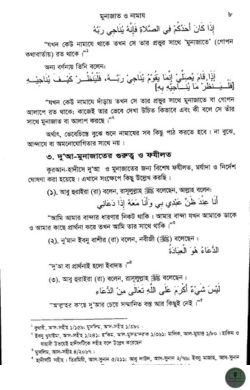 মুনাজাত ও নামায
৮
إِذَا كَانَ أَحَدُكُمْ فِي الصَّلَاةِ فَإِنَّهُ يُنَاجِي رَبَّهُ
"যখন কেউ নামাযে থাকে তখন সে তার প্রভুর সাথে 'মুনাজাতে' (গোপন
কথাবার্তায়) রত থাকে।"
অন্য বর্ণনায় তিনি বলেন:
إِذَا قَامَ يُصَلِّي إِنَّمَا يَقُومُ يُنَاجِي رَبَّهُ، فَلْيَنْظُرْ كَيْفَ يُنَاجِيهِ
"যখন কেউ নামাযে দাঁড়ায় তখন সে তার প্রভুর সাথে মুনাজাতে বা গোপন
আলাপে রত থাকে। কাজেই তার ভেবে দেখা উচিত কিভাবে এবং কী বলে সে তাঁর
সাথে মুনাজাত বা আলাপ করছে।"
অর্থাৎ, ভেবেচিন্তে বুঝে শুনে নামাযের সব কিছু পাঠ করতে হবে। না বুঝে,
আন্দাযে বা অমনোযোগিতার সাথে নয়।
৩. দু'আ-মুনাজাতের গুরুত্ব ও ফযীলত
কুরআন-হাদীসে দু'আ ও মুনাজাতের জন্য বিশেষ ফযীলত, মর্যাদা ও নির্দেশ
ঘোষণা করা হয়েছে। এখানে সংক্ষেপে কিছু উল্লেখ করছি।
(১). আবু হুরাইরা (রা) বলেন, রাসূলুল্লাহ ﷺ বলেছেন, আল্লাহ বলেন:
أَنَا عِنْدَ ظَنِّ عَبْدِي بِي وَأَنَا مَعَهُ إِذَا دَعَانِي
"আমি আমার বান্দার ধারণার নিকট থাকি। আমার বান্দা যখন আমাকে ডাকে
ও আমার কাছে প্রার্থনা করে তখন আমি তার সাথে থাকি।"
(২). নু'মান ইবনু বাশীর (রা) বলেন, নবীজী (ﷺ) বলেছেন:
الدُّعَاءُ هُوَ الْعِبَادَةُ
"দু'আ বা প্রার্থনাই হলো ইবাদত।"
(৩). আবু হুরাইরা (রা) বলেন, রাসূলুল্লাহ ﷺ বলেছেন:
لَيْسَ شَيْءٌ أَكْرَمَ عَلَى اللَّهِ تَعَالَى مِنَ الدُّعَاءِ
"আল্লাহর কাছে দু'আর চেয়ে সম্মানিত বস্তু আর কিছুই নেই।"